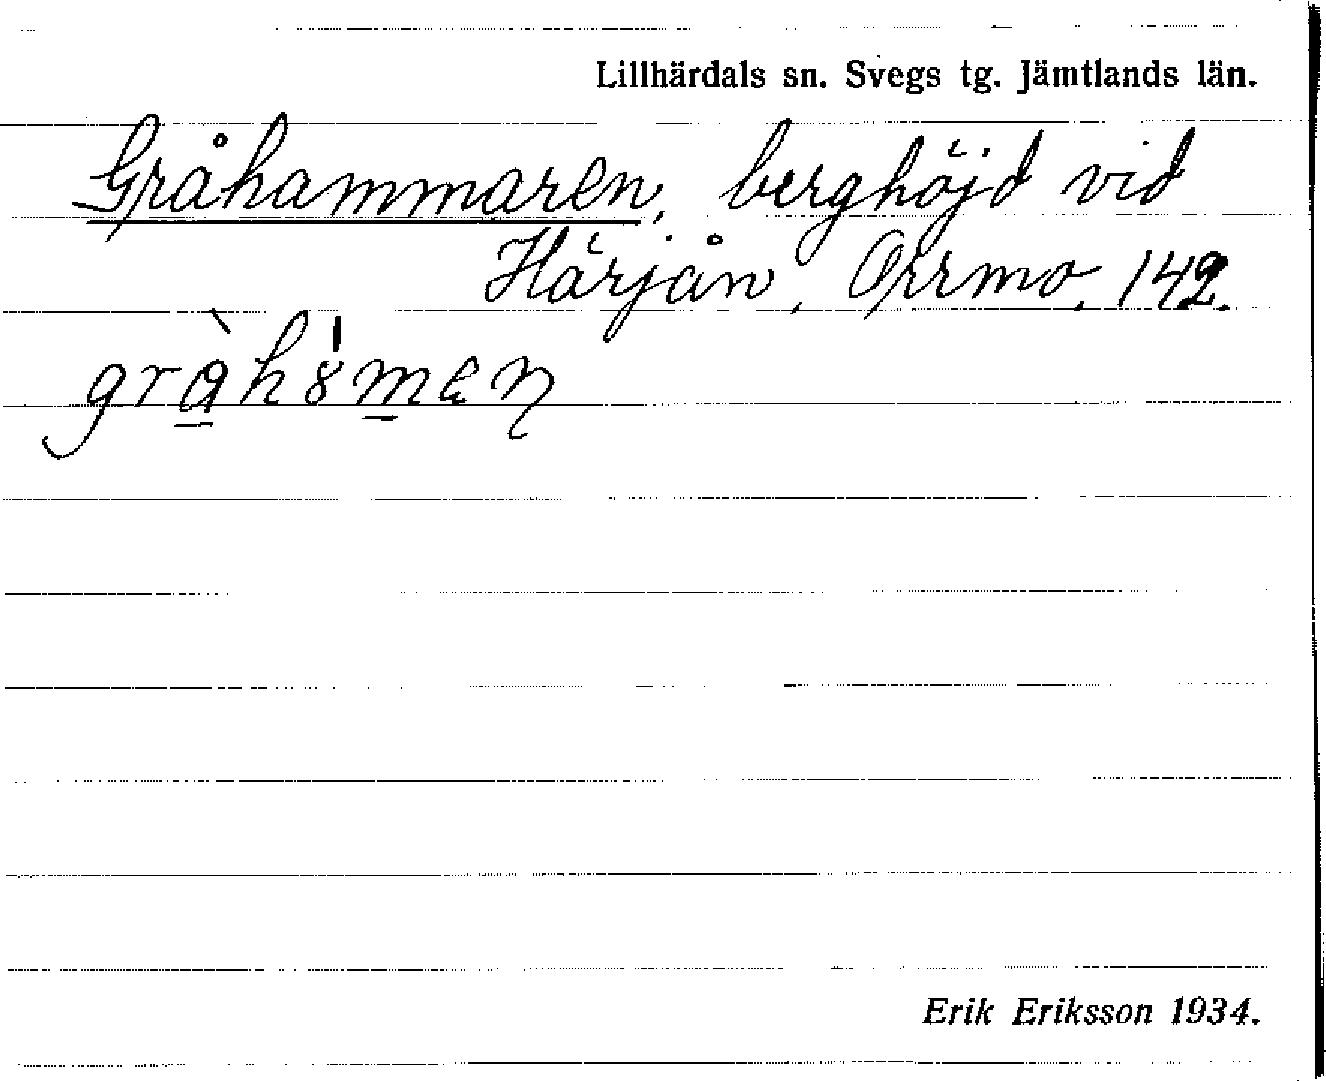 Lillhärdals sn. Svegs tg. Jämtlands län.
Gråhammaren, berghöjd vid
Härjån, Orrmo, 142.
Erik Eriksson 1934.